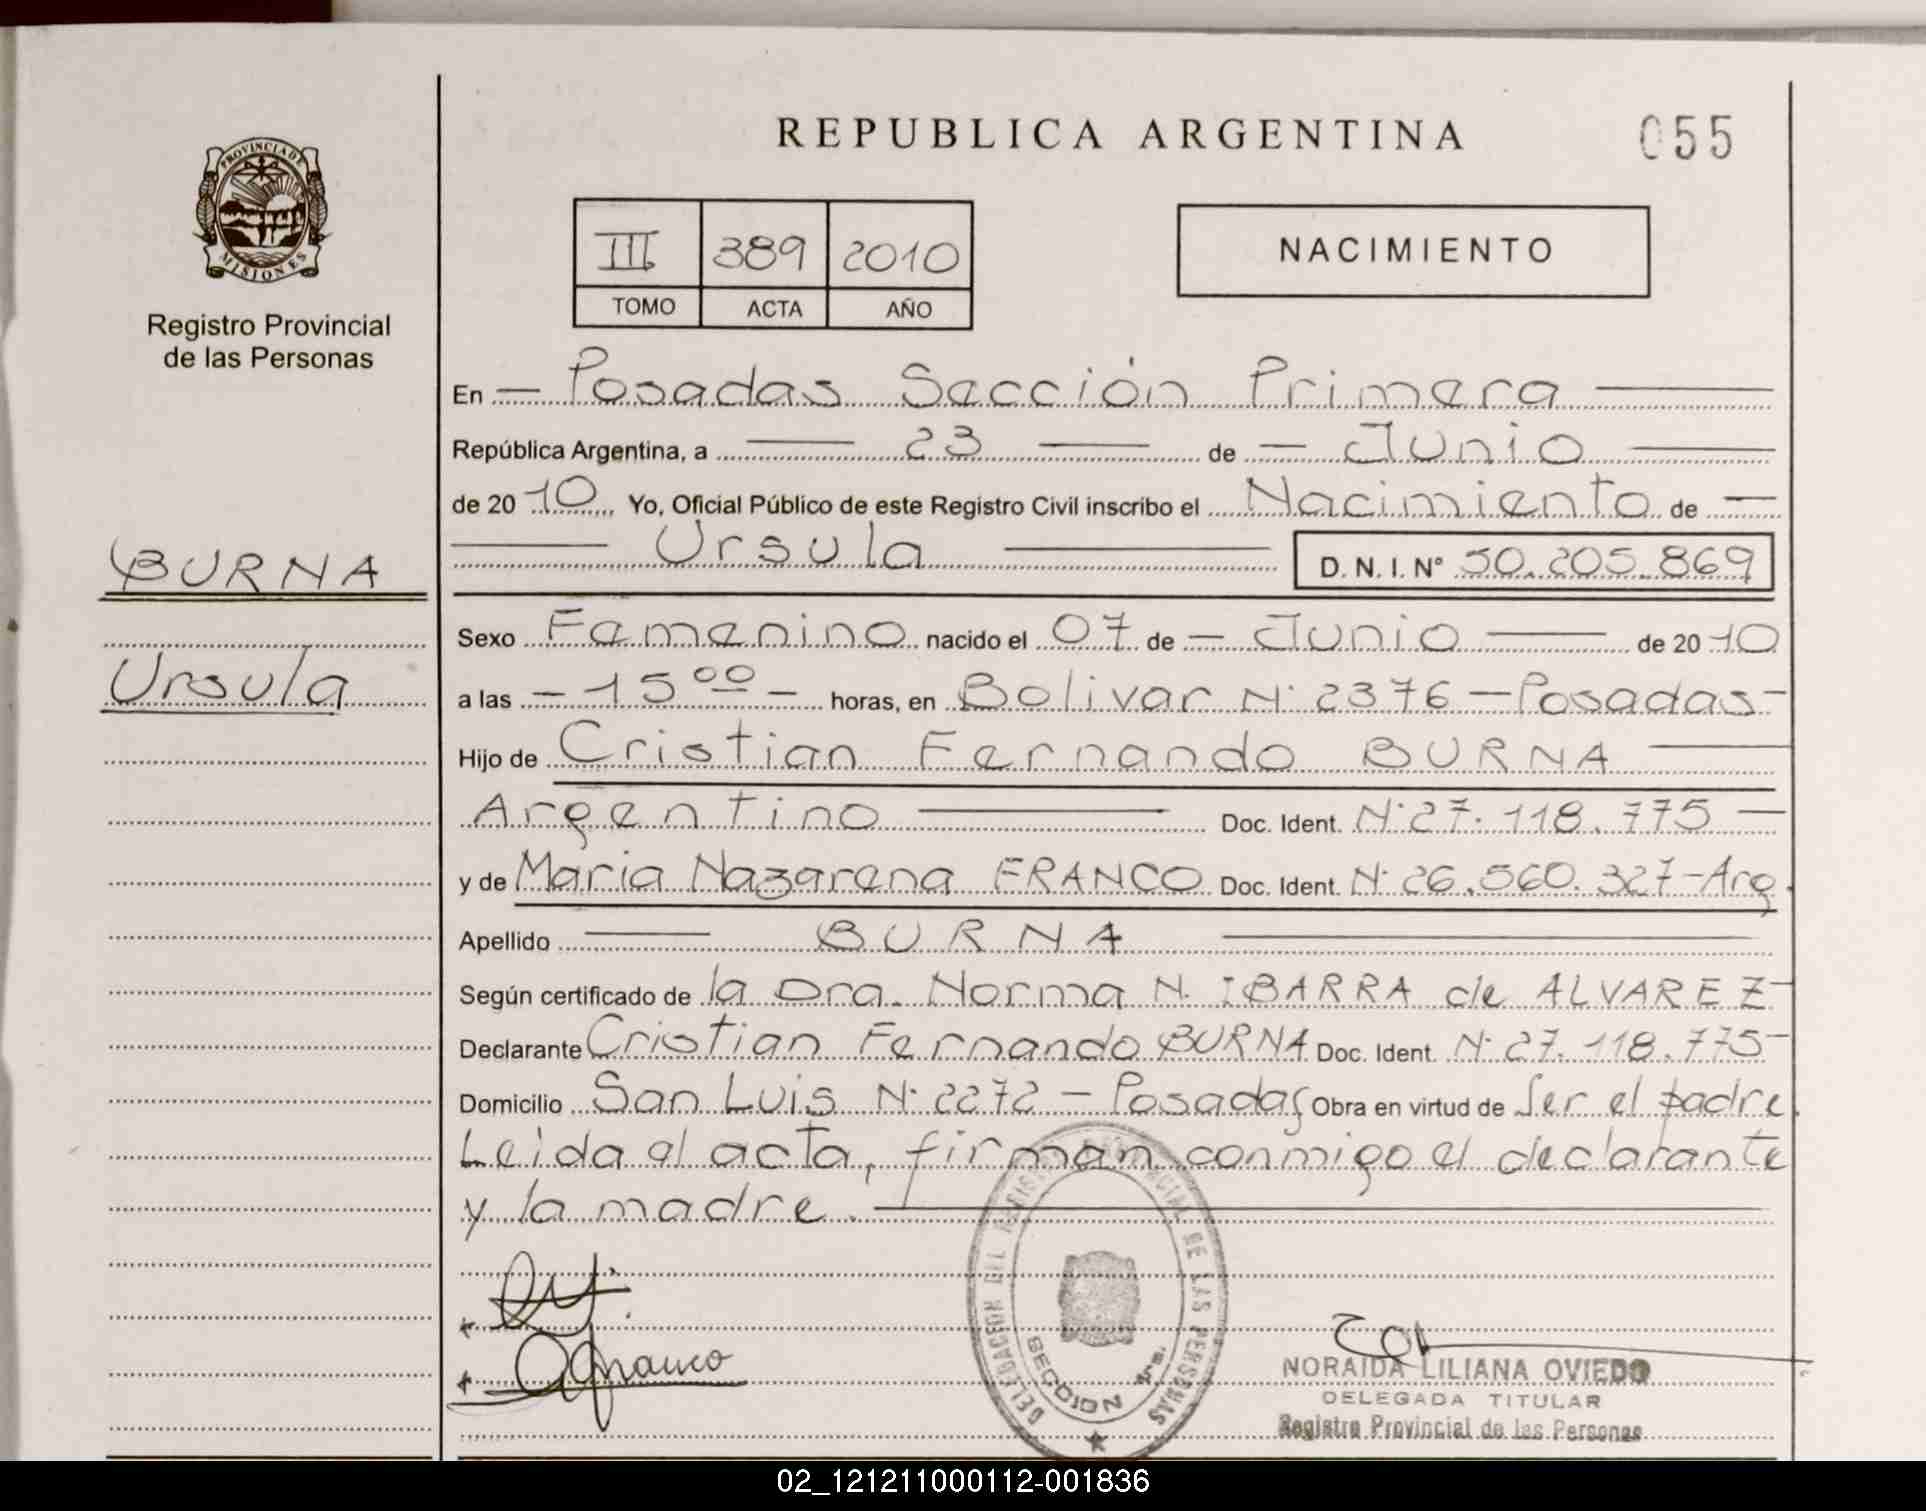 REPUBLICA ARGENTINA
055
PROVINCIA DE
MISIONES
Registro Provincial
de las Personas
III 389 2010
TOMO ACTA AÑO
NACIMIENTO
En Posadas Sección Primera
República Argentina, a 23 de Junio
de 2010 Yo, Oficial Público de este Registro Civil inscribo el Nacimiento de
Ursula D.N.I.N° 50.205.869
BURNA
Ursula
Sexo Femenino nacido el 07 de Junio de 2010
a las 15 00 horas, en Bolivar N° 2376 - Posadas -
Hijo de Cristian Fernando BURNA
Argentino Doc. Ident. N° 27.118.775
y de Maria Nazarena FRANCO Doc. Ident. N° 26.560.327 - Arg.
Apellido BURNA
Según certificado de la Dra. Norma N. IBARRA de ALVAREZ
Declarante Cristian Fernando BURNA Doc. Ident. N° 27.118.775
Domicilio San Luis N° 2272 - Posadas Obra en virtud de Ser el padre.
Leida el acta, firman conmigo el declarante
y la madre.
Franco
DELEGACION DEL REGISTRO PROVINCIAL DE LAS PERSONAS
SECCION 1ra.
NORAIDA LILIANA OVIEDO
DELEGADA TITULAR
Registro Provincial de las Personas
02_121211000112-001836